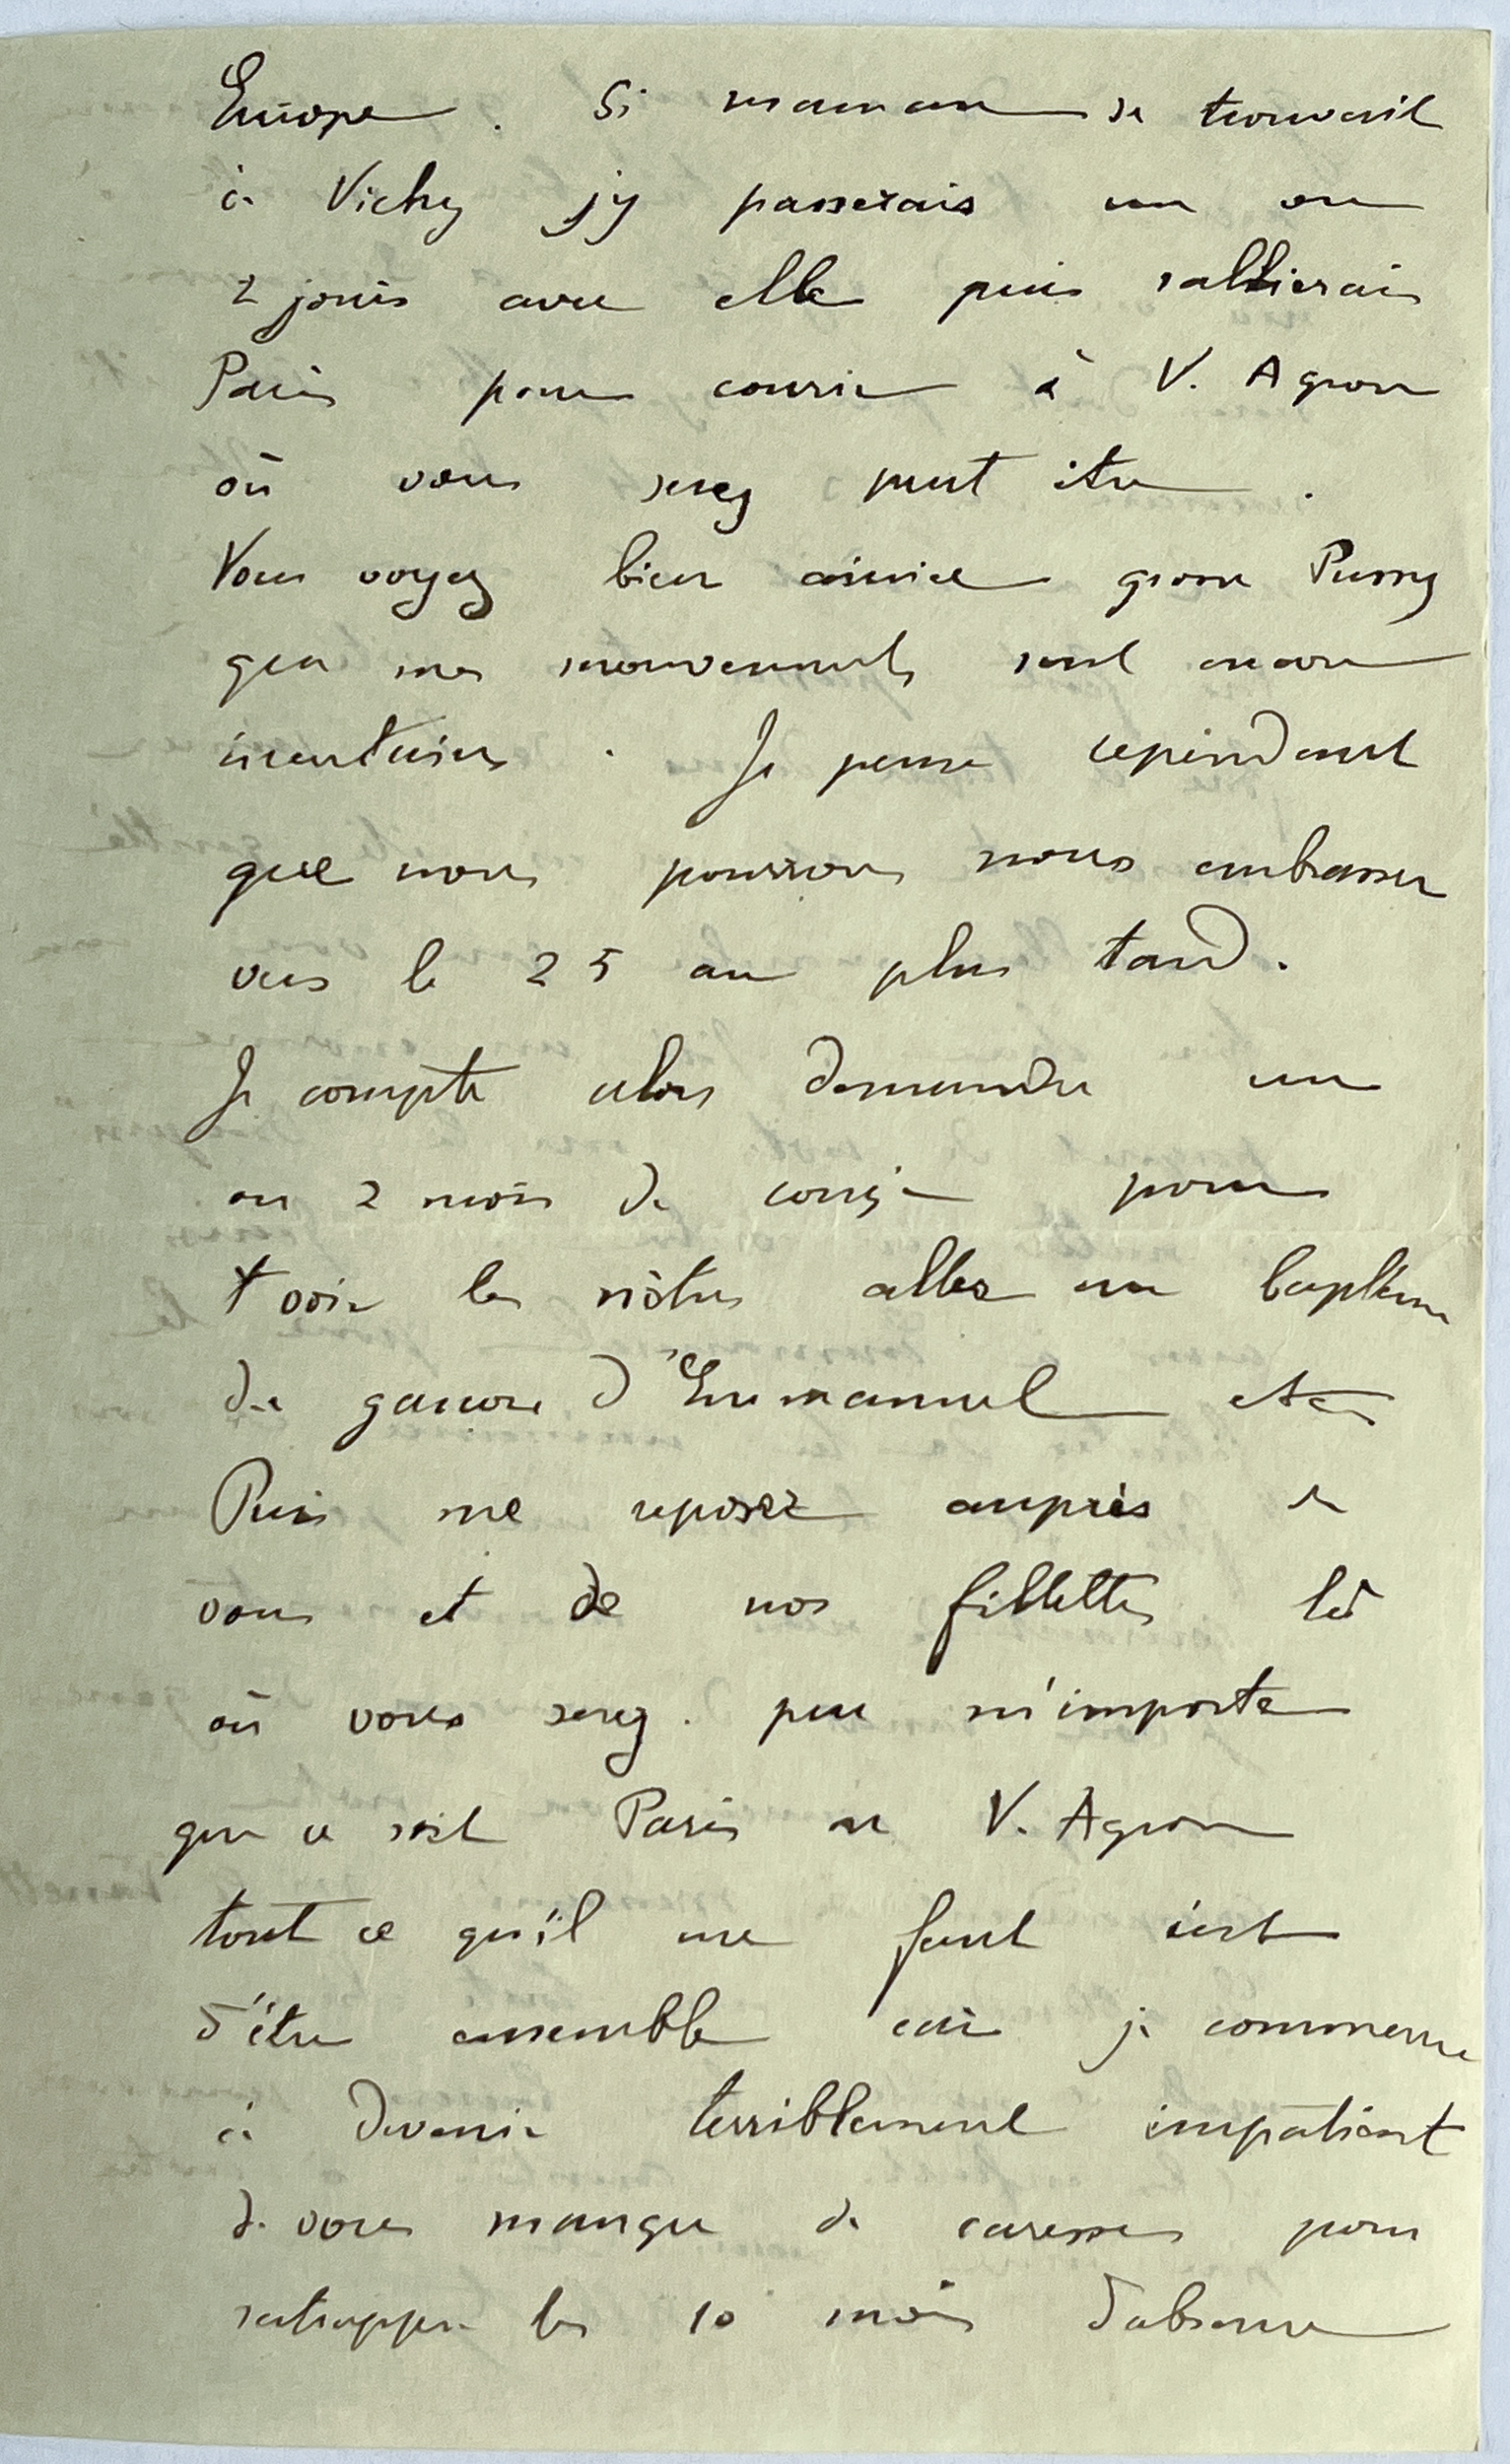 Europe. Si maman se trouvait
à Vichy j'y passerais un ou
2 jours avec elle puis rallierais
Paris pour courir à V. Agron
où vous serez peut être.
Vous voyez bien aimée grosse Pussy
que mes mouvements sont encore
incertains. Je pense cependant
que nous pourrons nous embrasser
vers le 25 au plus tard.
Je compte alors demander un
ou 2 mois de congé pour
voir les nôtres aller au baptême
de d'Emmanuel etc
Puis me reposer auprès de
vous et de nos fillettes là
où vous serez. peu m'importe
que ce soit Paris ou V. Agron
tout ce qu'il me faut c'est
d'être ensemble car je commence
à devenir terriblement impatient
de vous manger de caresses pour
rattrapper les 10 mois d'absence